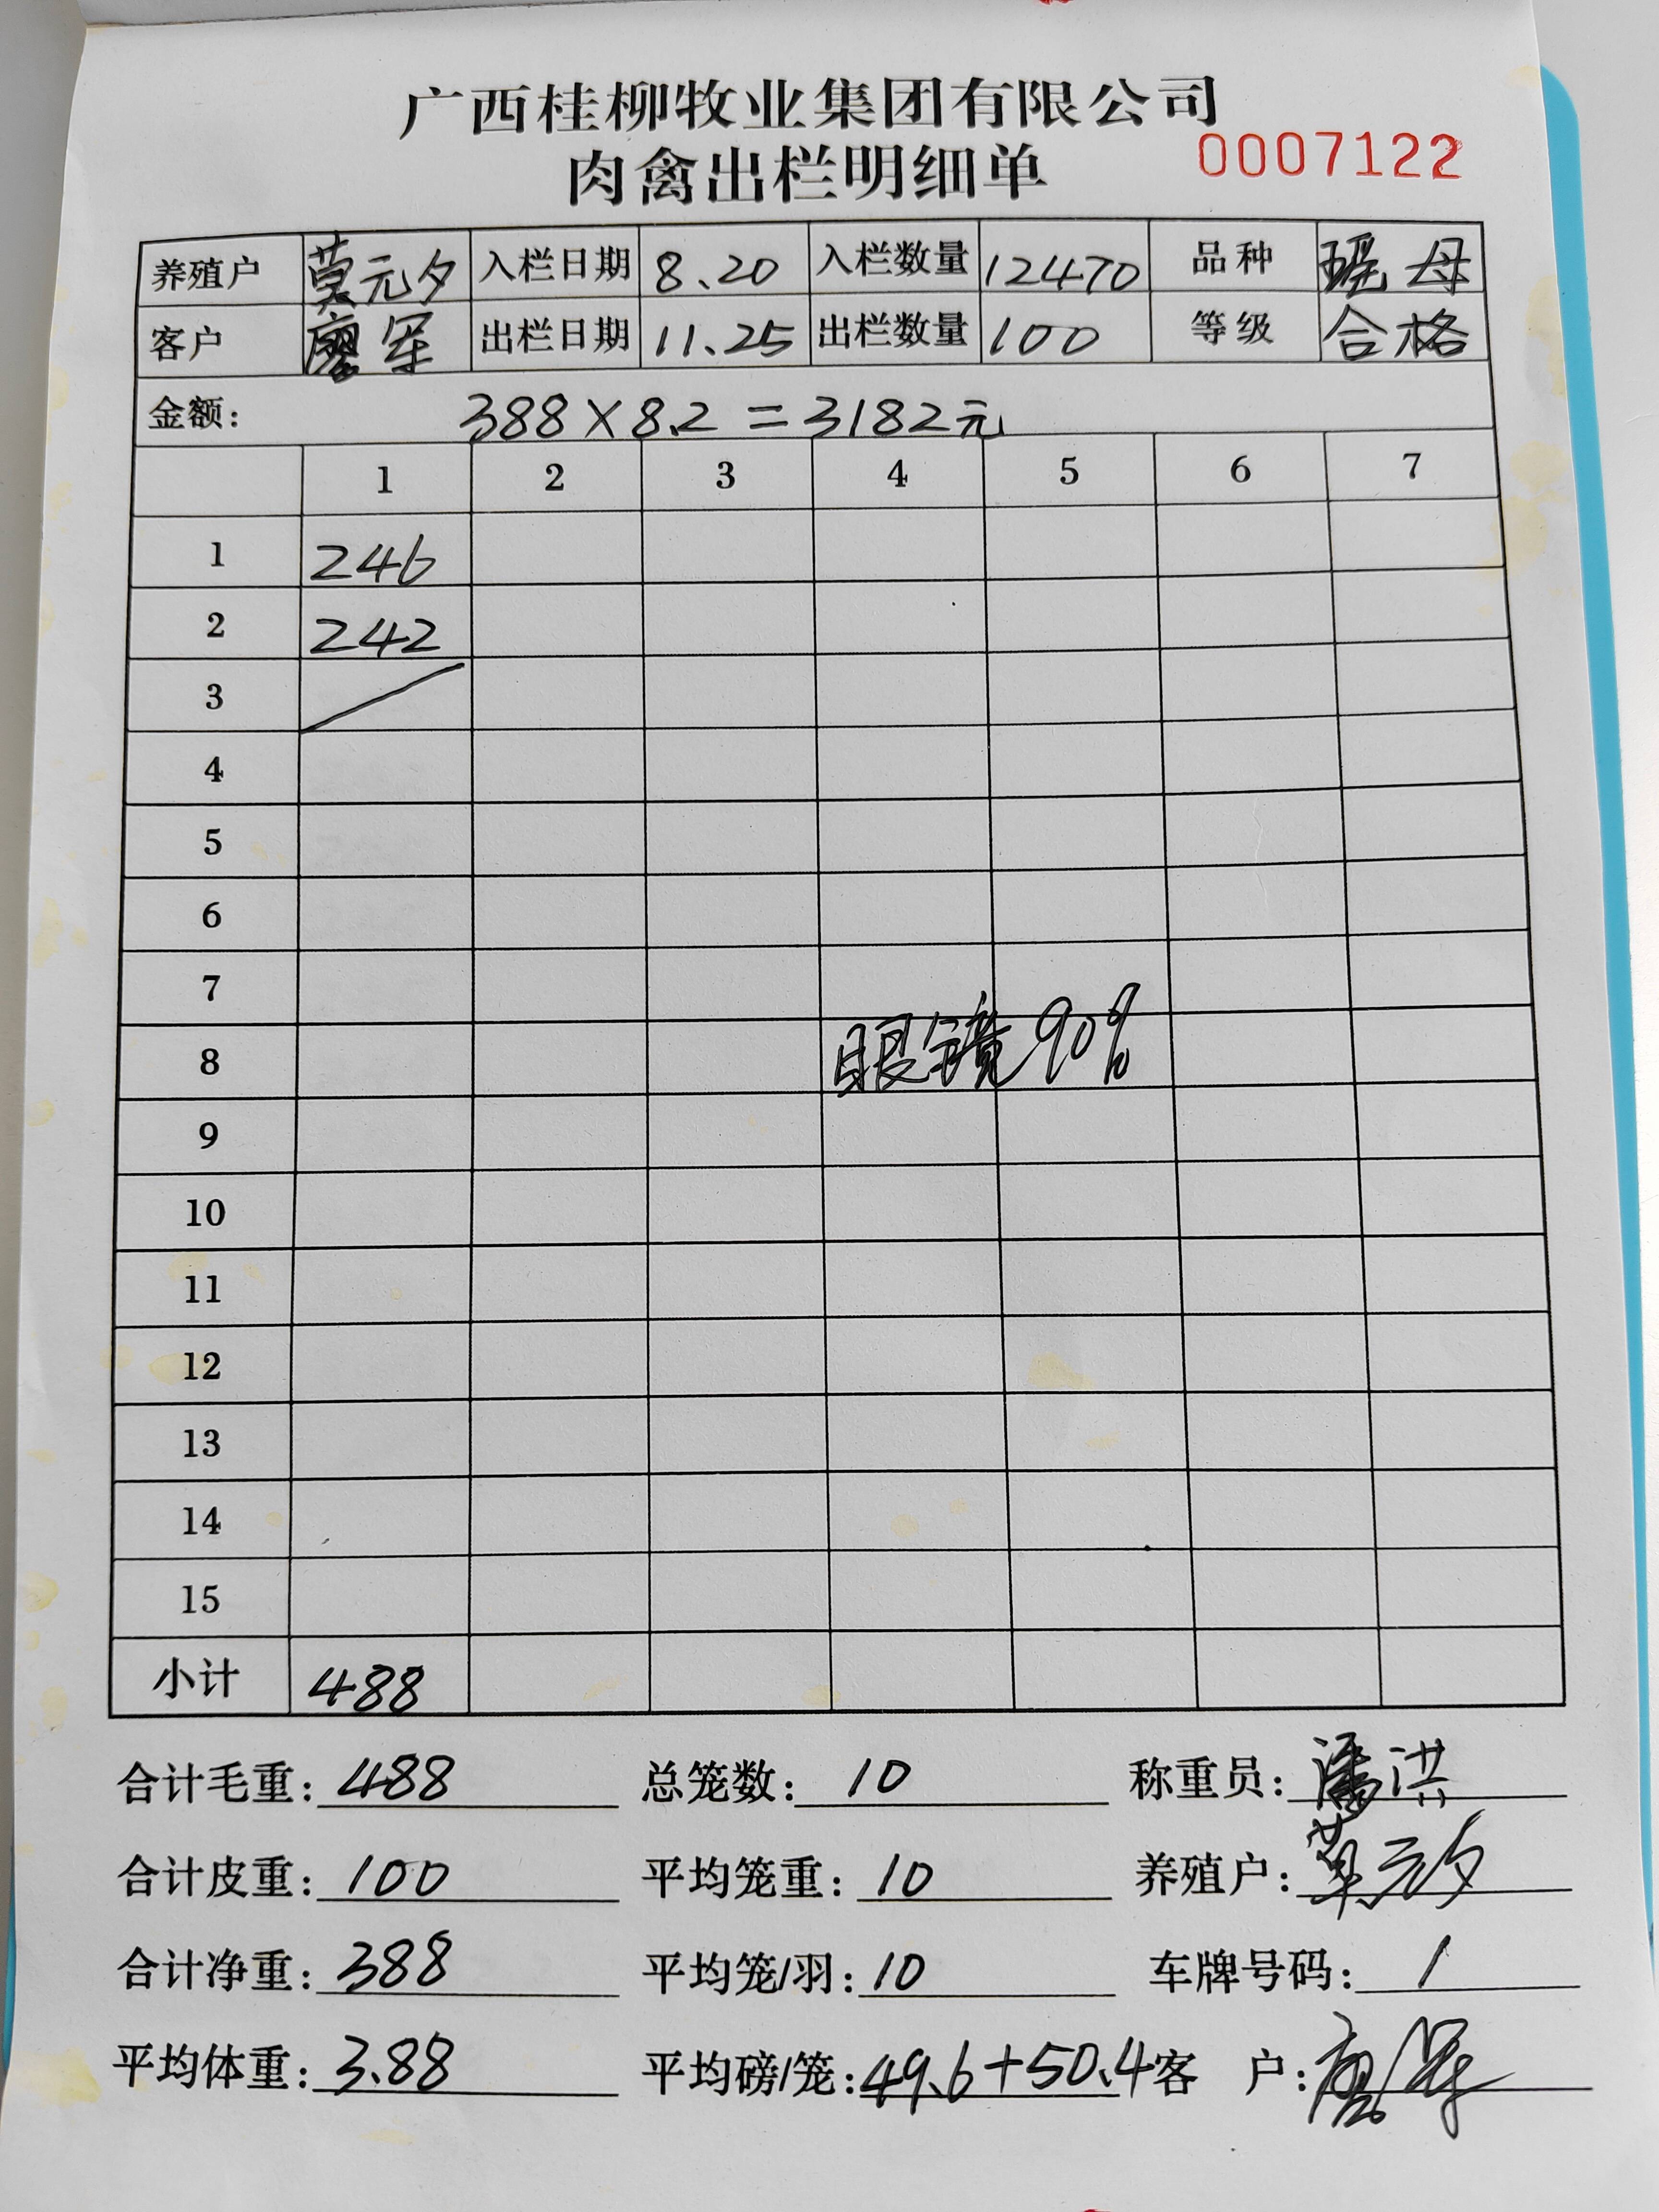 广西桂柳牧业集团有限公司
肉禽出栏明细单 0007122
养殖户 莫元夕 入栏日期 8.20 入栏数量 12470 品种 瑶母
客户 廖军 出栏日期 11.25 出栏数量 100 等级 合格
金额: 388×8.2=3182元
1 2 3 4 5 6 7
1 246
2 242
3
4
5
6
7
8 眼镜90%
9
10
11
12
13
14
15
小计 488
合计毛重: 488 总笼数: 10 称重员: 潘洪
合计皮重: 100 平均笼重: 10 养殖户: 莫元夕
合计净重: 388 平均笼/羽: 10 车牌号码: /
平均体重: 3.88 平均磅/笼: 49.6+50.4 客 户: 廖军